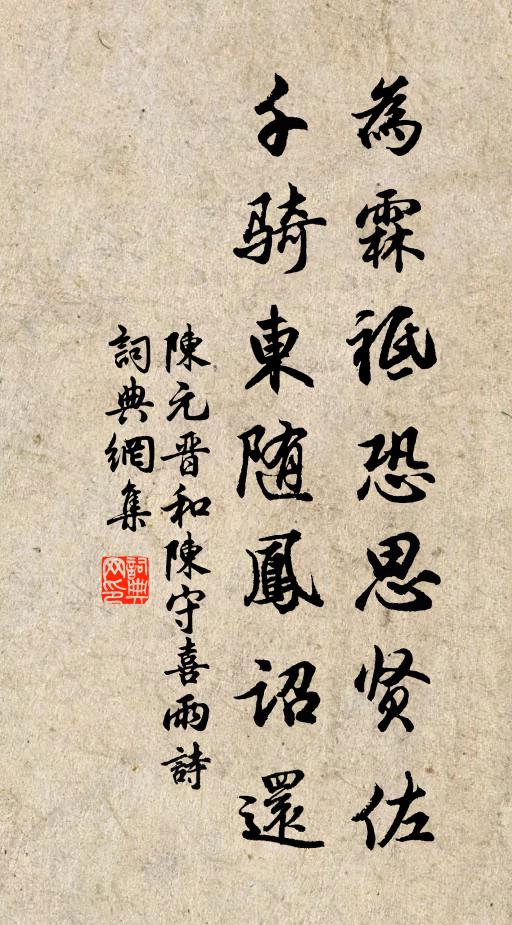 為霖祗恐思贤佐
千骑東随鳳詔還
陳元晋和陳守喜雨詩
詞典網集
詞典
网印